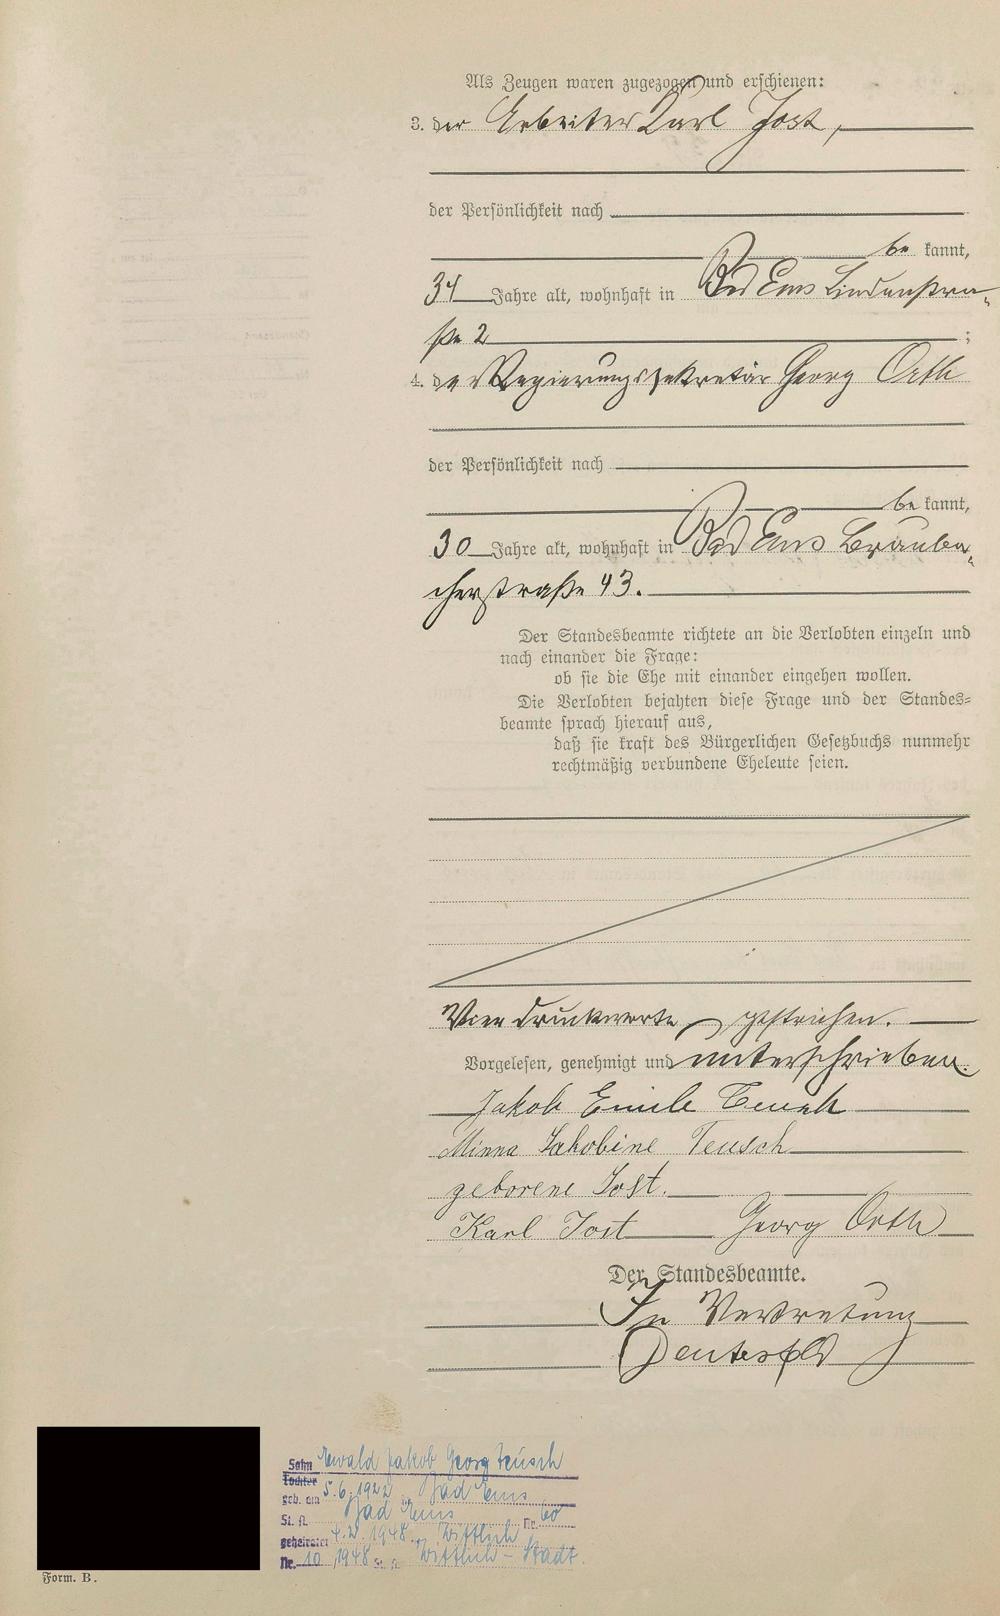 Als Zeugen waren zugezogen und erschienen:
3. der Arbeiter Karl Jost,
der Persönlichkeit nach
be kannt,
34 Jahre alt, wohnhaft in Bad Ems Lindenstra-
ße 2 ;
4. der Regierungssekretär Georg Orth
der Persönlichkeit nach
be kannt,
30 Jahre alt, wohnhaft in Bad Ems Brauba-
cherstraße 43.
Der Standesbeamte richtete an die Verlobten einzeln und
nach einander die Frage:
ob sie die Ehe mit einander eingehen wollen.
Die Verlobten bejahten diese Frage und der Standes=
beamte sprach hierauf aus,
daß sie kraft des Bürgerlichen Gesetzbuchs nunmehr
rechtmäßig verbundene Eheleute seien.
Vier Druckworte gestrichen.
Vorgelesen, genehmigt und unterschrieben.
Jakob Emile Teusch
Minna Jakobine Teusch
geborene Jost.
Karl Jost Georg Orth
Der Standesbeamte.
In Vertretung
Sohn Ewald Jakob Georg Teusch
Tochter
geb. am 5.6.1922 Bad Ems
St. A. Bad Ems Nr. 60
geheiratet 4.2.1948 Wittlich
Nr. 10 1948 St. A. Wittlich - Stadt.
Form. B.